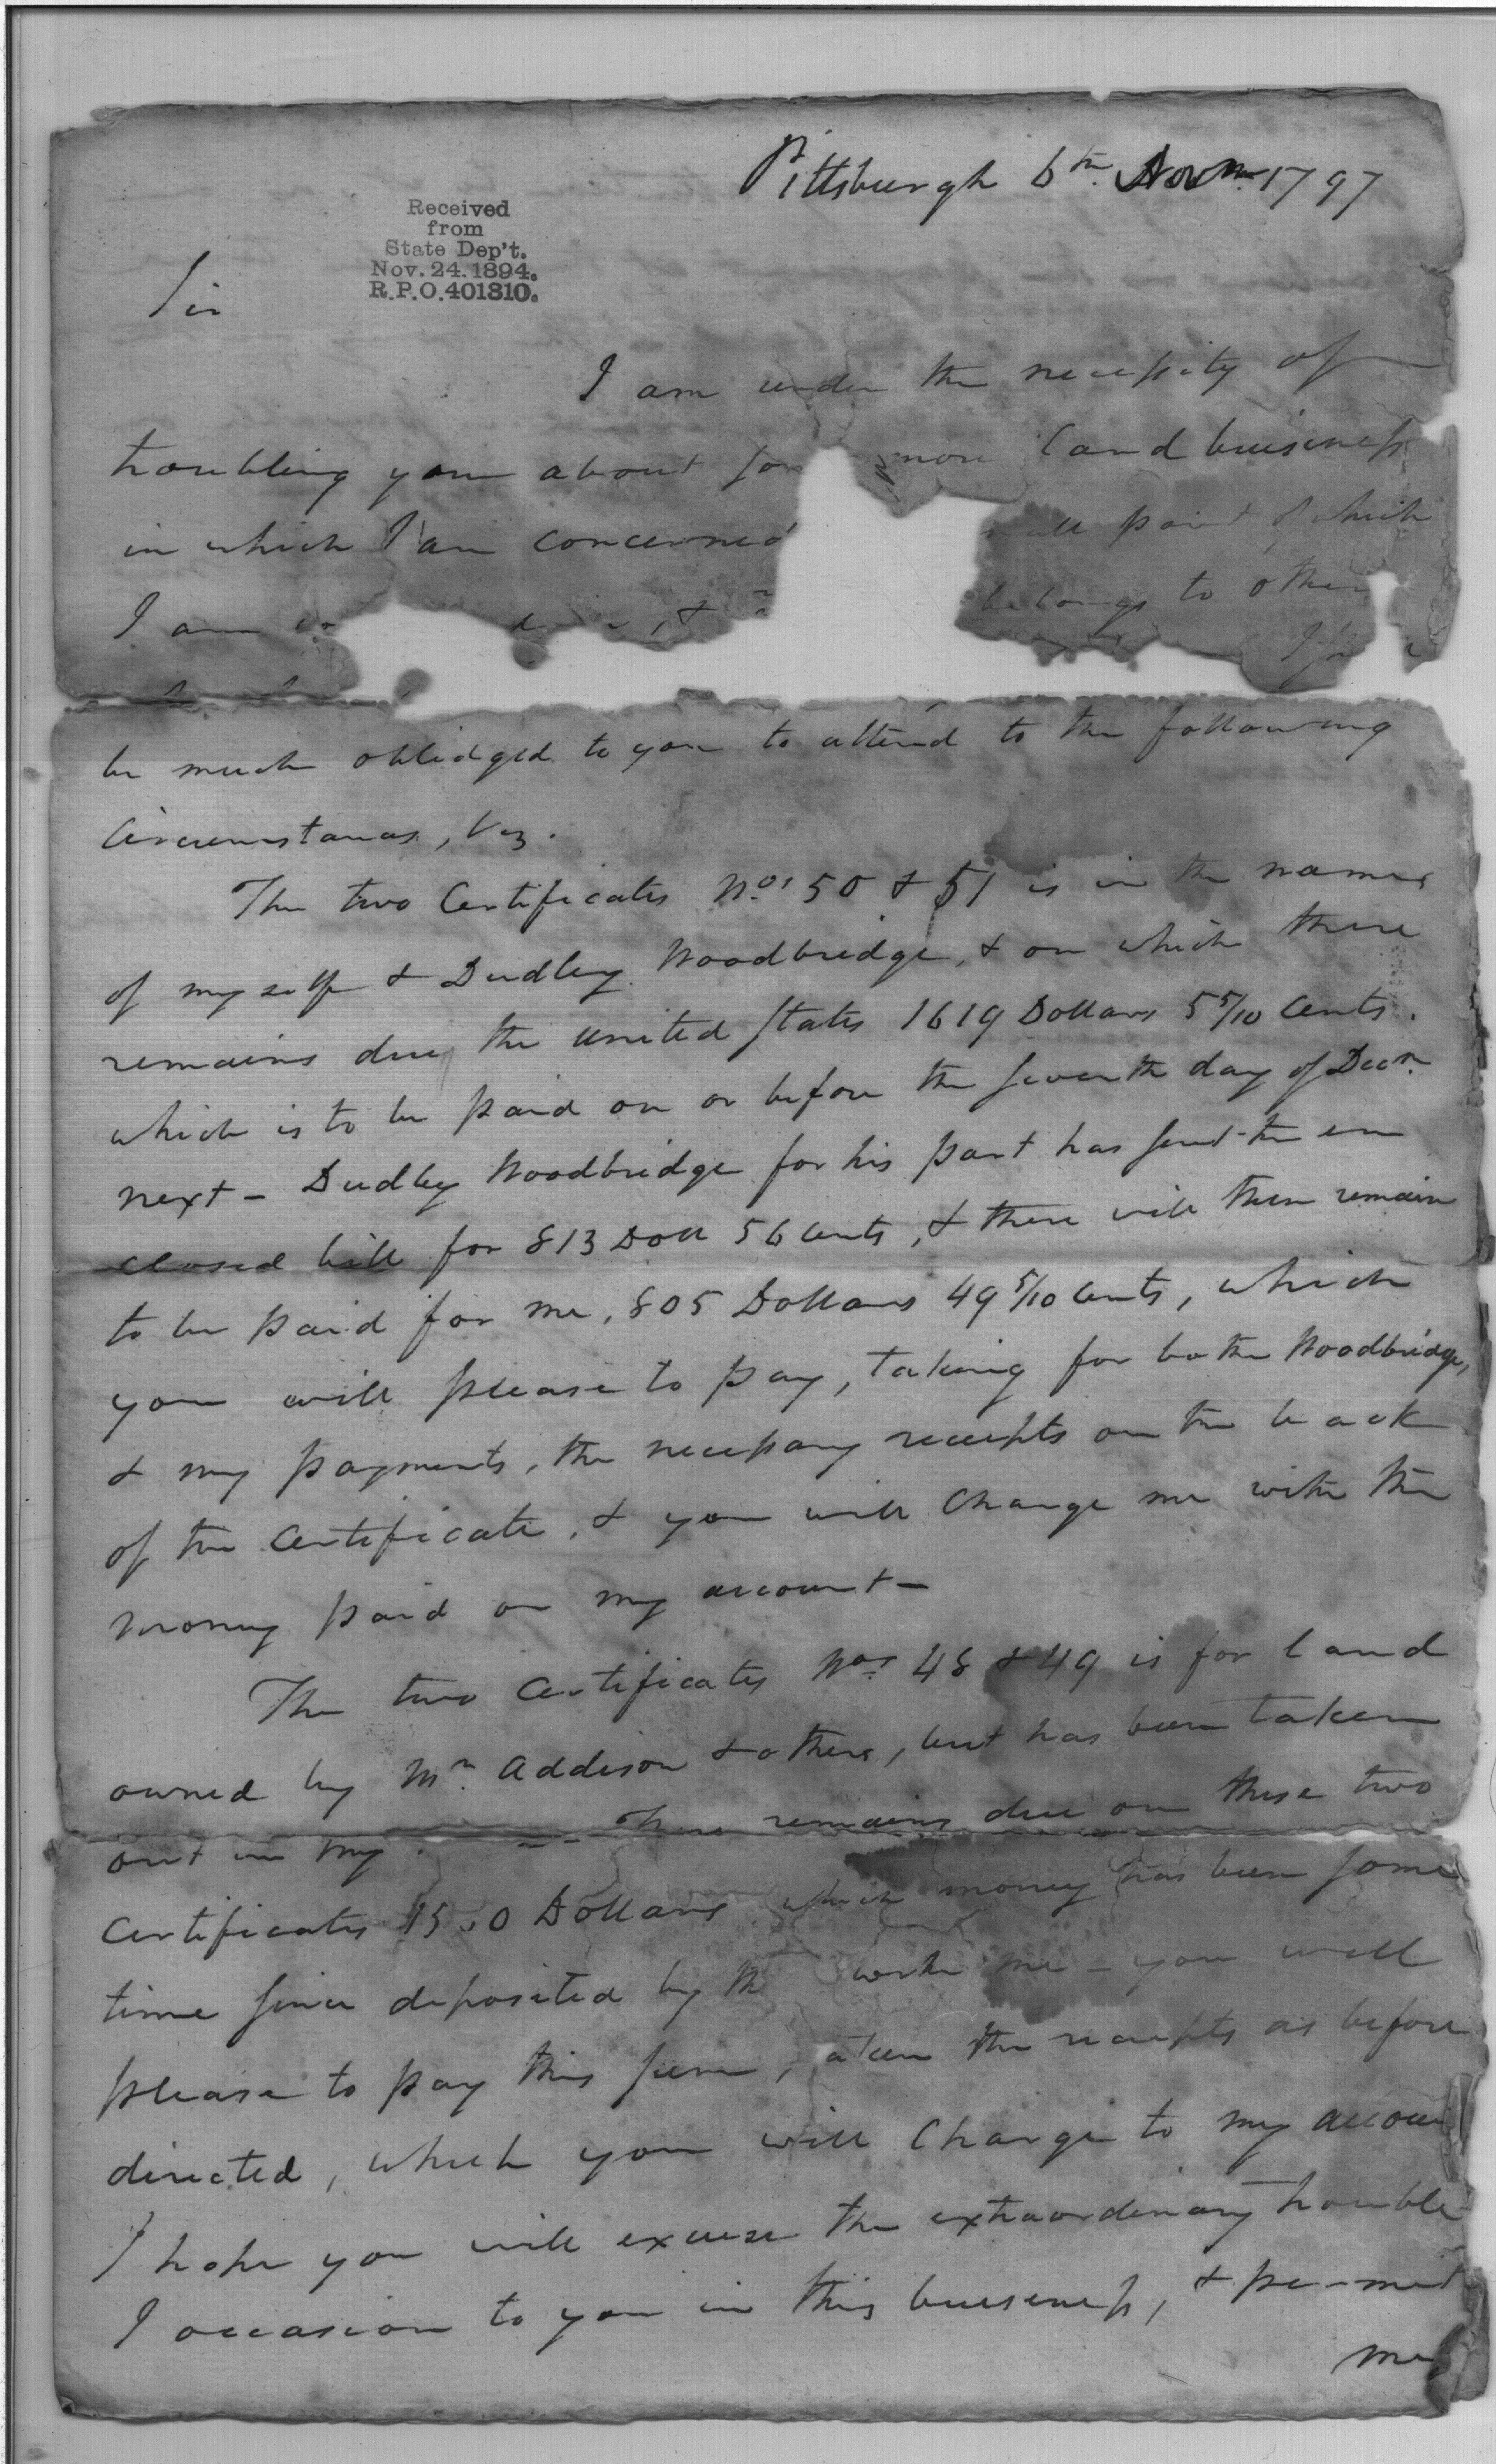 Pittsburgh 6th. Novr. 1797
Received
from
State Dep't.
Nov. 24. 1894.
R.P.O. 401310.
Sir
I am under the necessity of
troubling you about more land buisiness
in which I am concerned part of which
I am & belongs to other
be much oblidged to you to attend to the following
Circumstances, Viz.
The two Certificates Nos. 50 & 51 is in the names
of myself & Dudley Woodbridge, & on which there
remains due the United States 1619 Dollars 5 5/10 Cents.
which is to be paid on or before the seventh day of Decr.
next - Dudley Woodbridge for his part has send the en
closed bill for 813 Doll 56 Cents, & there will then remain
to be paid for me, 805 Dollars 49 5/10 Cents, which
you will please to pay, taking for both Woodbridge,
& my payments, the necessary receipts on the back
of the Certificate, & you will Charge me with the
money paid on my account -
The two Certificates Nos. 48 & 49 is for land
owned by Mr. Addison & others, but has been taken
out in my There remains due on these two
Certificates Dollars which money has been some
time since deposited by with me - you will
please to pay this sum, the receipts as before
directed, which you will Charge to my accoun
I hope you will excuse the extraordinary trouble
I occasion to you in this buisiness, & permit
me